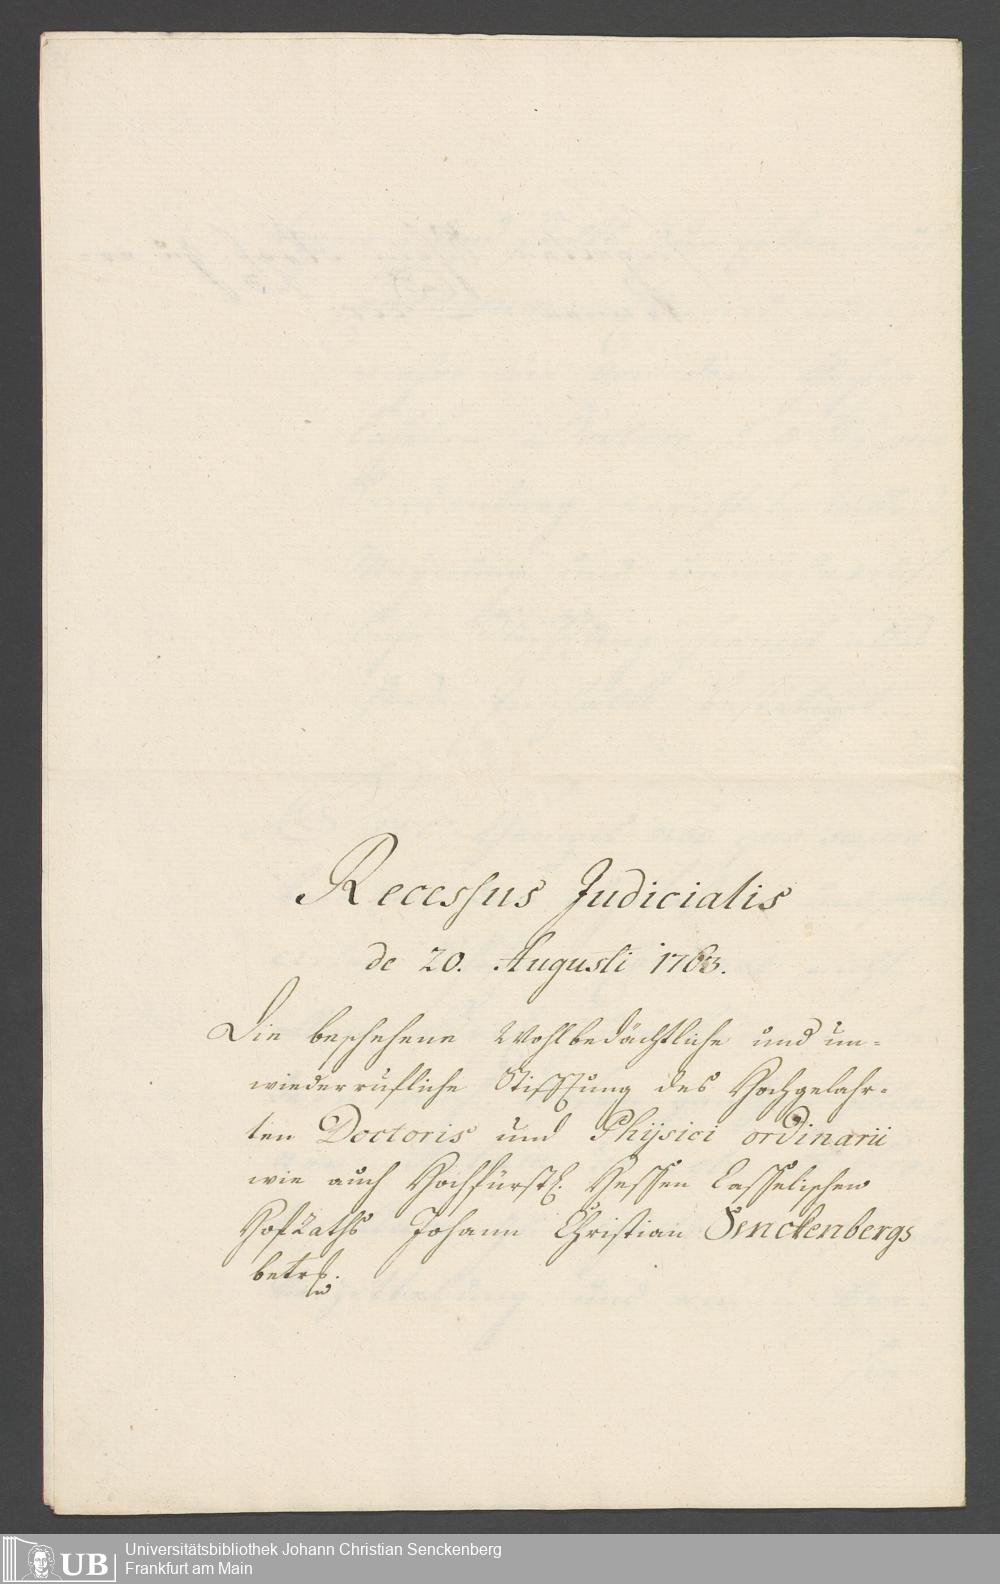 Recessus Judicialis
de 20. Augusti 1763.
Die beschehene Wohlbedächtliche und un=
wiederrufliche Stifftung des Hochgelahr=
ten Doctoris und Physici ordinarii
wie auch Hochfürstl. Hessen Casselischen
HofRaths Johann Christian Senckenbergs
betrf.
UB
Universitätsbibliothek Johann Christian Senckenberg
Frankfurt am Main